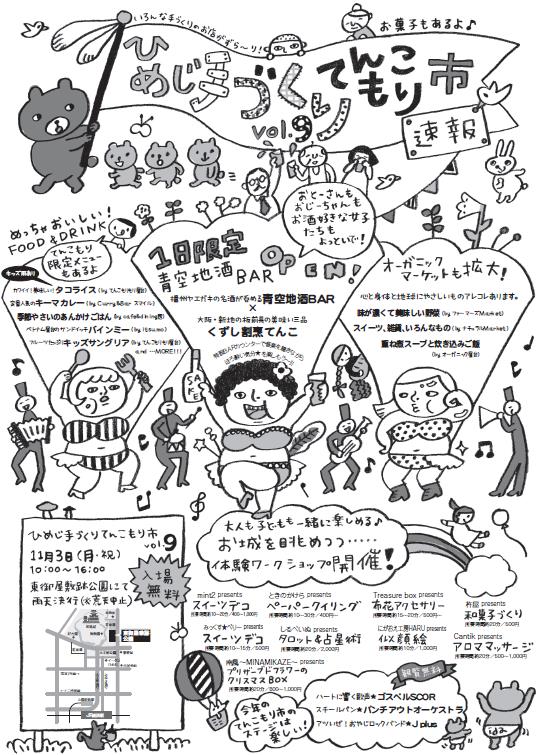 いろんな手づくりのお店がずら〜り!
お菓子もあるよ♪
ひめじ手づくり
てんこもり市
vol.9
速報
おとーさんも
おじーちゃんも
お酒好きな女子
たちも
よっといで!
めっちゃおいしい!
FOOD & DRINK
てんこもり
限定メニュー
もあるよ
キッズ用あり
カワイイ!美味しい!タコライス(by てんこもり屋台)
定番人気のキーマカレー(by Curry&Bar スマイル)
季節やさいのあんかけごはん
ベトナム屋台のサンドイッチバインミー(by itsumo)
フルーツたっぷりキッズサングリア(by てんこもり屋台)
and …MORE!!!
1日限定
青空地酒BAR OPEN!
播州ヤエガキの名酒が呑める青空地酒BAR
×
大阪・新地の板前長の美味い三品
くずし割烹てんこ
オーガニック
マーケットも拡大!
心と身体と地球にやさしいものアレコレあります。
味が濃くて美味しい野菜(by ファーマーズMarket)
スイーツ、雑貨、いろんなもの(by ナチュラルMarket)
重ね煮スープと炊き込みご飯
(by オーガニック屋台)
SAKE
ひめじ手づくりてんこもり市
vol.9
11月3日(月・祝)
10:00〜16:00
東御屋敷跡公園にて
雨天決行(※荒天中止)
入場
無料
大人も子どもも一緒に楽しめる♪
お城を眺めつつ……
体験ワークショップ開催!
mint2 presents
スイーツデコ
所要時間約10〜20分/400〜1,000円
ときのかけら presents
ペーパークイリング
所要時間約10〜30分/400円〜
Treasure box presents
布花アクセサリー
所要時間約15〜20分/500〜1,000円
杵屋 presents
和菓子づくり
所要時間約20分/500円
みっくす★べりー presents
スイーツデコ
所要時間約10〜15分/500円
しるべいぬ presents
タロット&占星術
所要時間約20分/2,000円
にがおえ工房HARU presents
似顔絵
所要時間約10分/1,000円
Cantik presents
アロママッサージ
所要時間約20分/500〜1,000円
南風〜MINAMIKAZE〜 presents
プリザーブドフラワーの
クリスマスBOX
所要時間約20分/800〜1,000円
今年の
てんこもり市の
ステージは
楽しい!
観覧無料
ハートに響く歌声★ゴスペルSCOR
スチールパン★パンチアウトオーケストラ
アツいぜ!おやじロックバンド★J plus